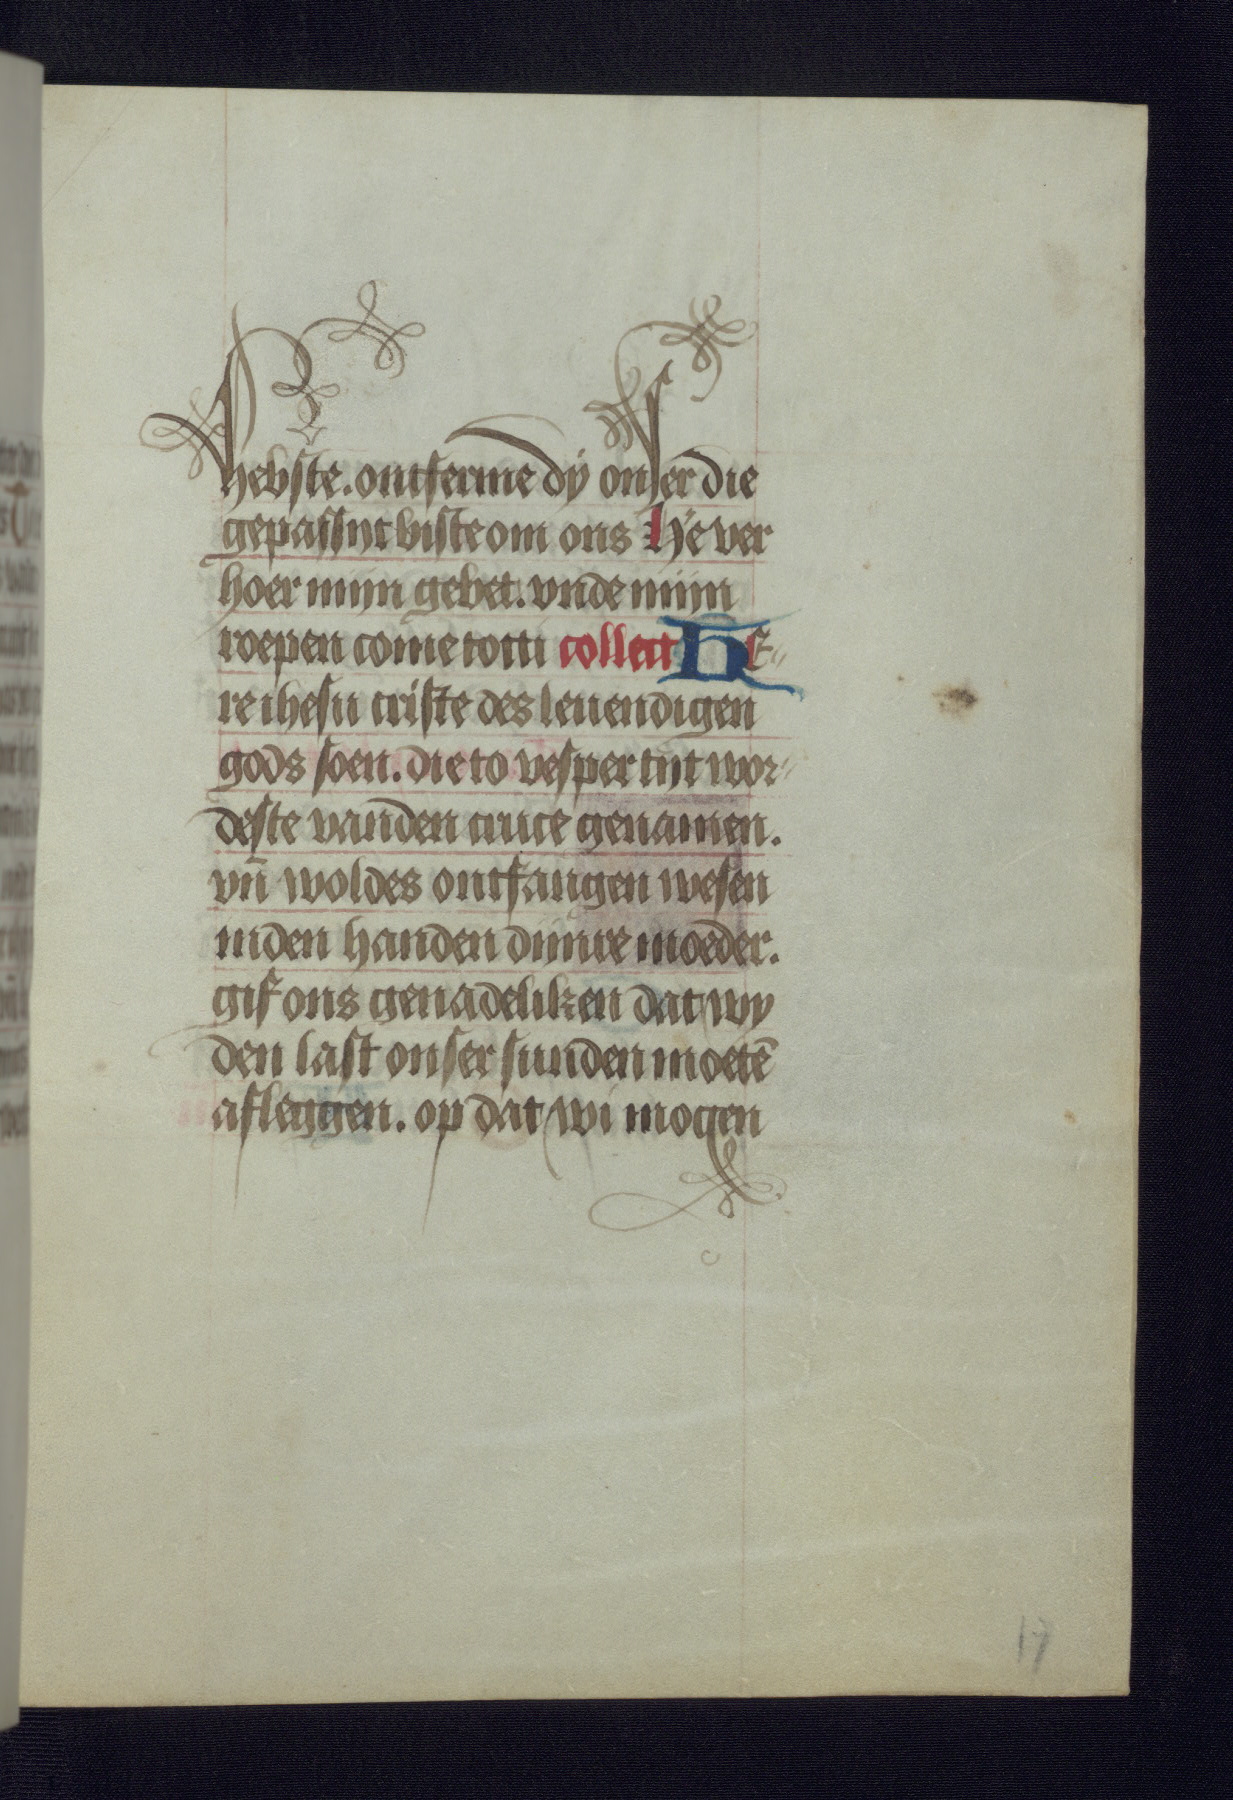 hebste. ontferme dÿ onser die
gepassijt biste om ons Hÿe ver
hoer mijn gebet. vnde mijn
roepen come tot ti collect HE
re ihesu criste des leuendigen
gods soen. die to vesper tijt wor
deste vanden cruce genamen.
vn̄ woldes ontfangen wesen
inden handen dinre moeder.
gif ons genadeliken dat wy
den last onser sunden moetē
afleggen. op dat wi mogen
17